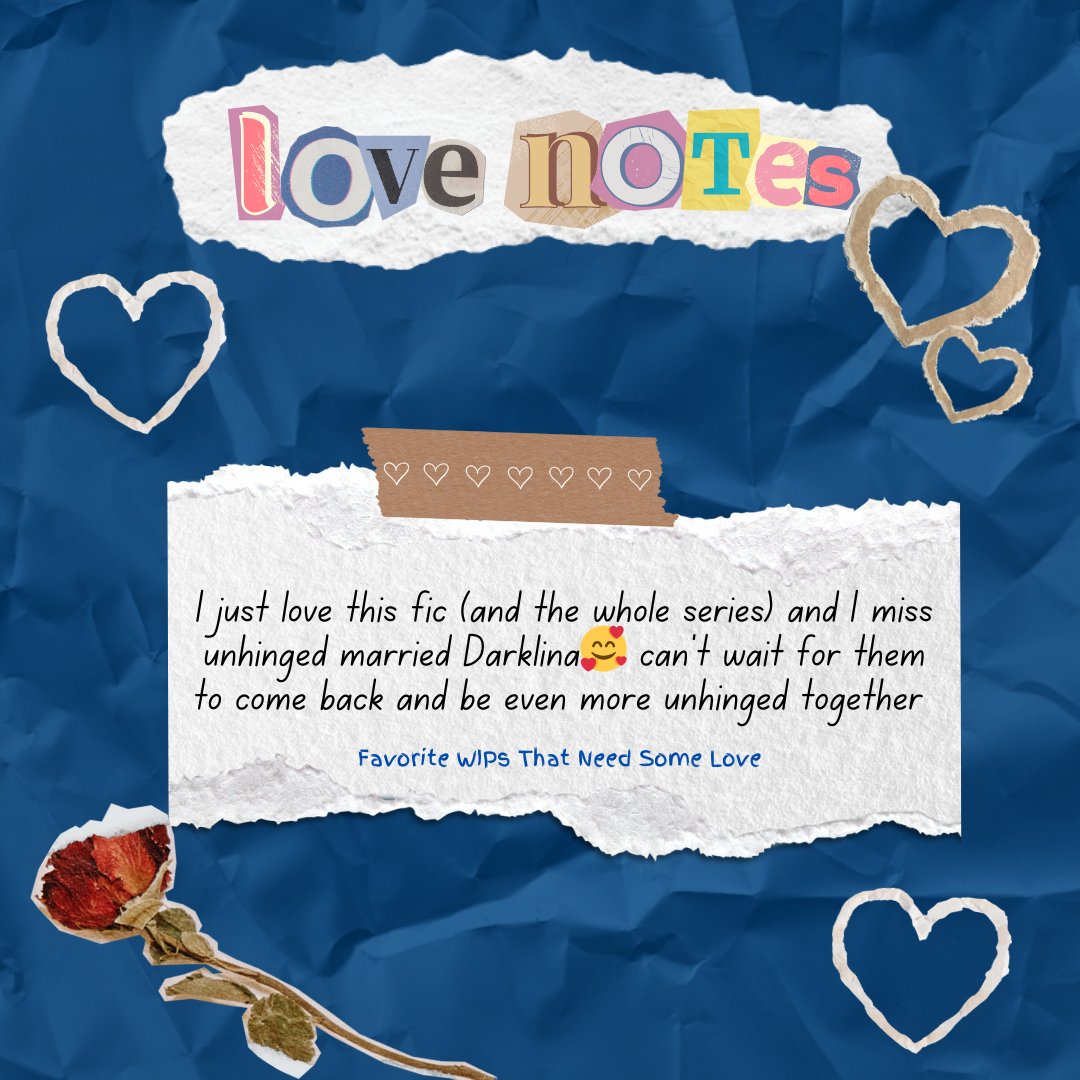 love noTes
I just love this fic (and the whole series) and I miss
unhinged married Darklina🥰 can't wait for them
to come back and be even more unhinged together
Favorite WIPs That Need Some Love